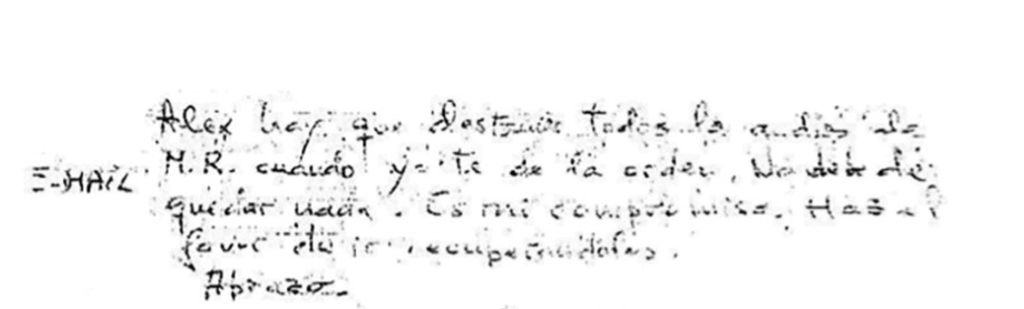 Alex hay que destruir todos los audios de
E-MAIL M.R. cuando yo te de la orden. No debe de
quedar nada. Es mi compromiso. Haz el
favor de ir recuperándolos.
Abrazo.